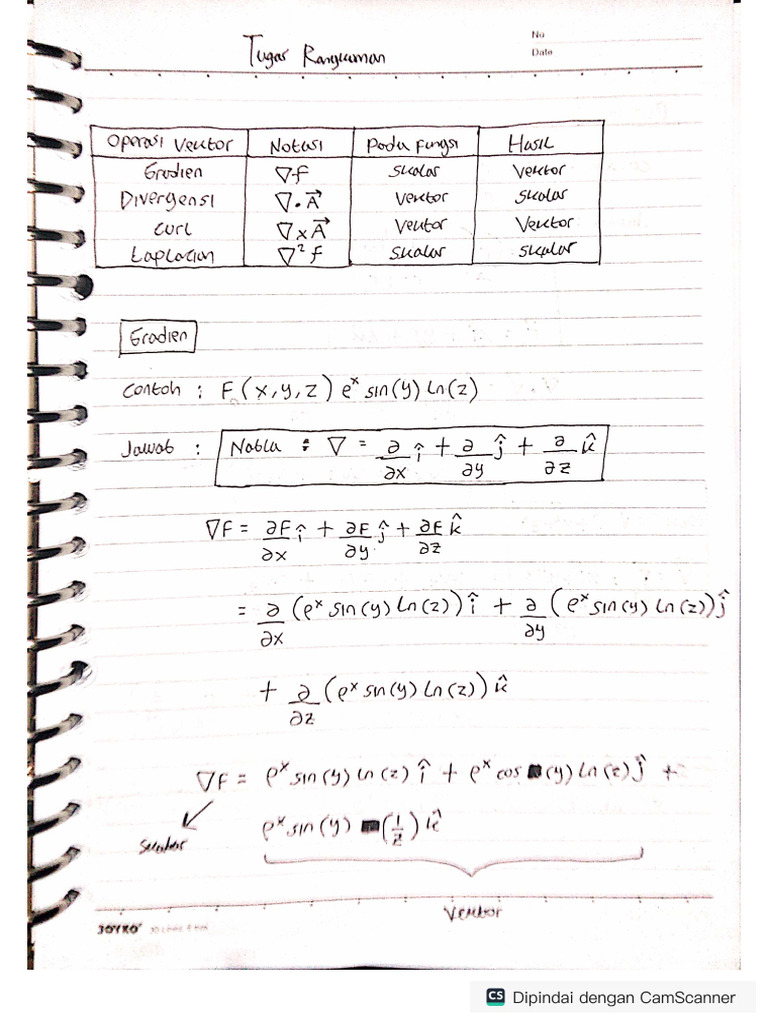 No
Date
Tugas Rangkuman
Operasi Vektor Notasi Pada Fungsi Hasil
Gradien ∇f Skalar Vektor
Divergensi ∇•A⃗ Vektor Skalar
Curl ∇×A⃗ Vektor Vektor
Laplacian ∇² f Skalar Skalar
Gradien
Contoh : F(x,y,z) eˣ sin(y) ln(z)
Jawab : Nabla : ∇ = ∂/∂x î + ∂/∂y ĵ + ∂/∂z k̂
∇F = ∂F/∂x î + ∂F/∂y ĵ + ∂F/∂z k̂
= ∂/∂x (eˣ sin(y) ln(z)) î + ∂/∂y (eˣ sin(y) ln(z)) ĵ
+ ∂/∂z (eˣ sin(y) ln(z)) k̂
∇F = eˣ sin(y) ln(z) î + eˣ cos (y) ln(z) ĵ +
eˣ sin(y) (1/z) k̂
Skalar
Vektor
JOYKO
CS Dipindai dengan CamScanner